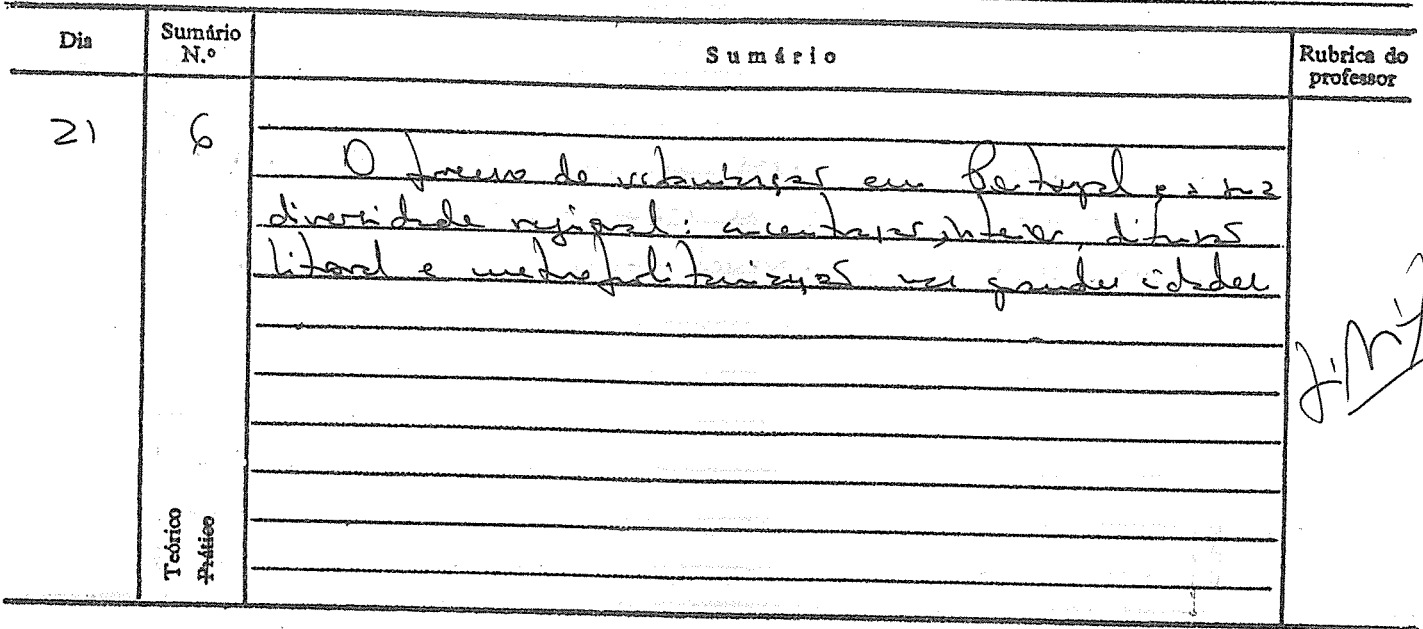 Dia Sumário N.º Sumário Rubrica do professor
21 6
O processo de urbanização em Portugal e a sua
diversidade regional: interior,
litoral e metropolitanização nas grandes cidades
Teórico
Prático